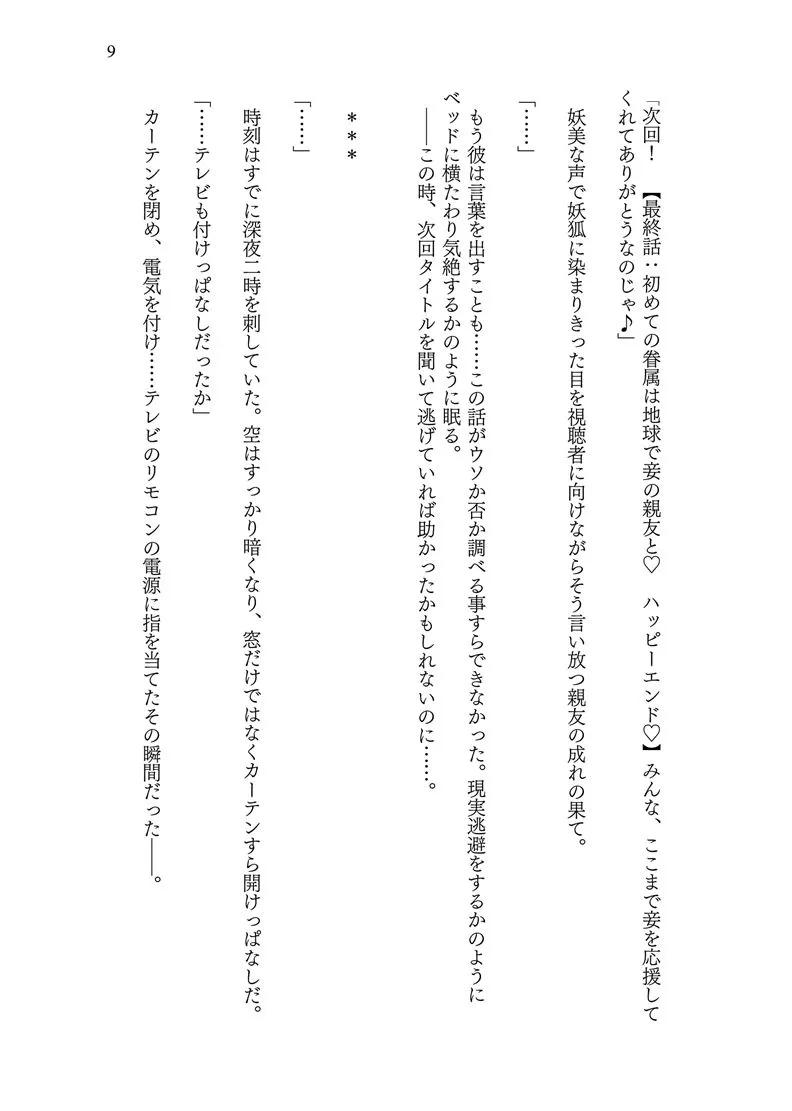 9
「次回！　【最終話：初めての眷属は地球で妾の親友と♡　ハッピーエンド♡】みんな、ここまで妾を応援して
くれてありがとうなのじゃ♪」
妖美な声で妖狐に染まりきった目を視聴者に向けながらそう言い放つ親友の成れの果て。
「……」
もう彼は言葉を出すことも……この話がウソか否か調べる事すらできなかった。現実逃避をするかのように
ベッドに横たわり気絶するかのように眠る。
――この時、次回タイトルを聞いて逃げていれば助かったかもしれないのに……。
＊＊＊
「……」
時刻はすでに深夜二時を刺していた。空はすっかり暗くなり、窓だけではなくカーテンすら開けっぱなしだ。
「……テレビも付けっぱなしだったか」
カーテンを閉め、電気を付け……テレビのリモコンの電源に指を当てたその瞬間だった――。